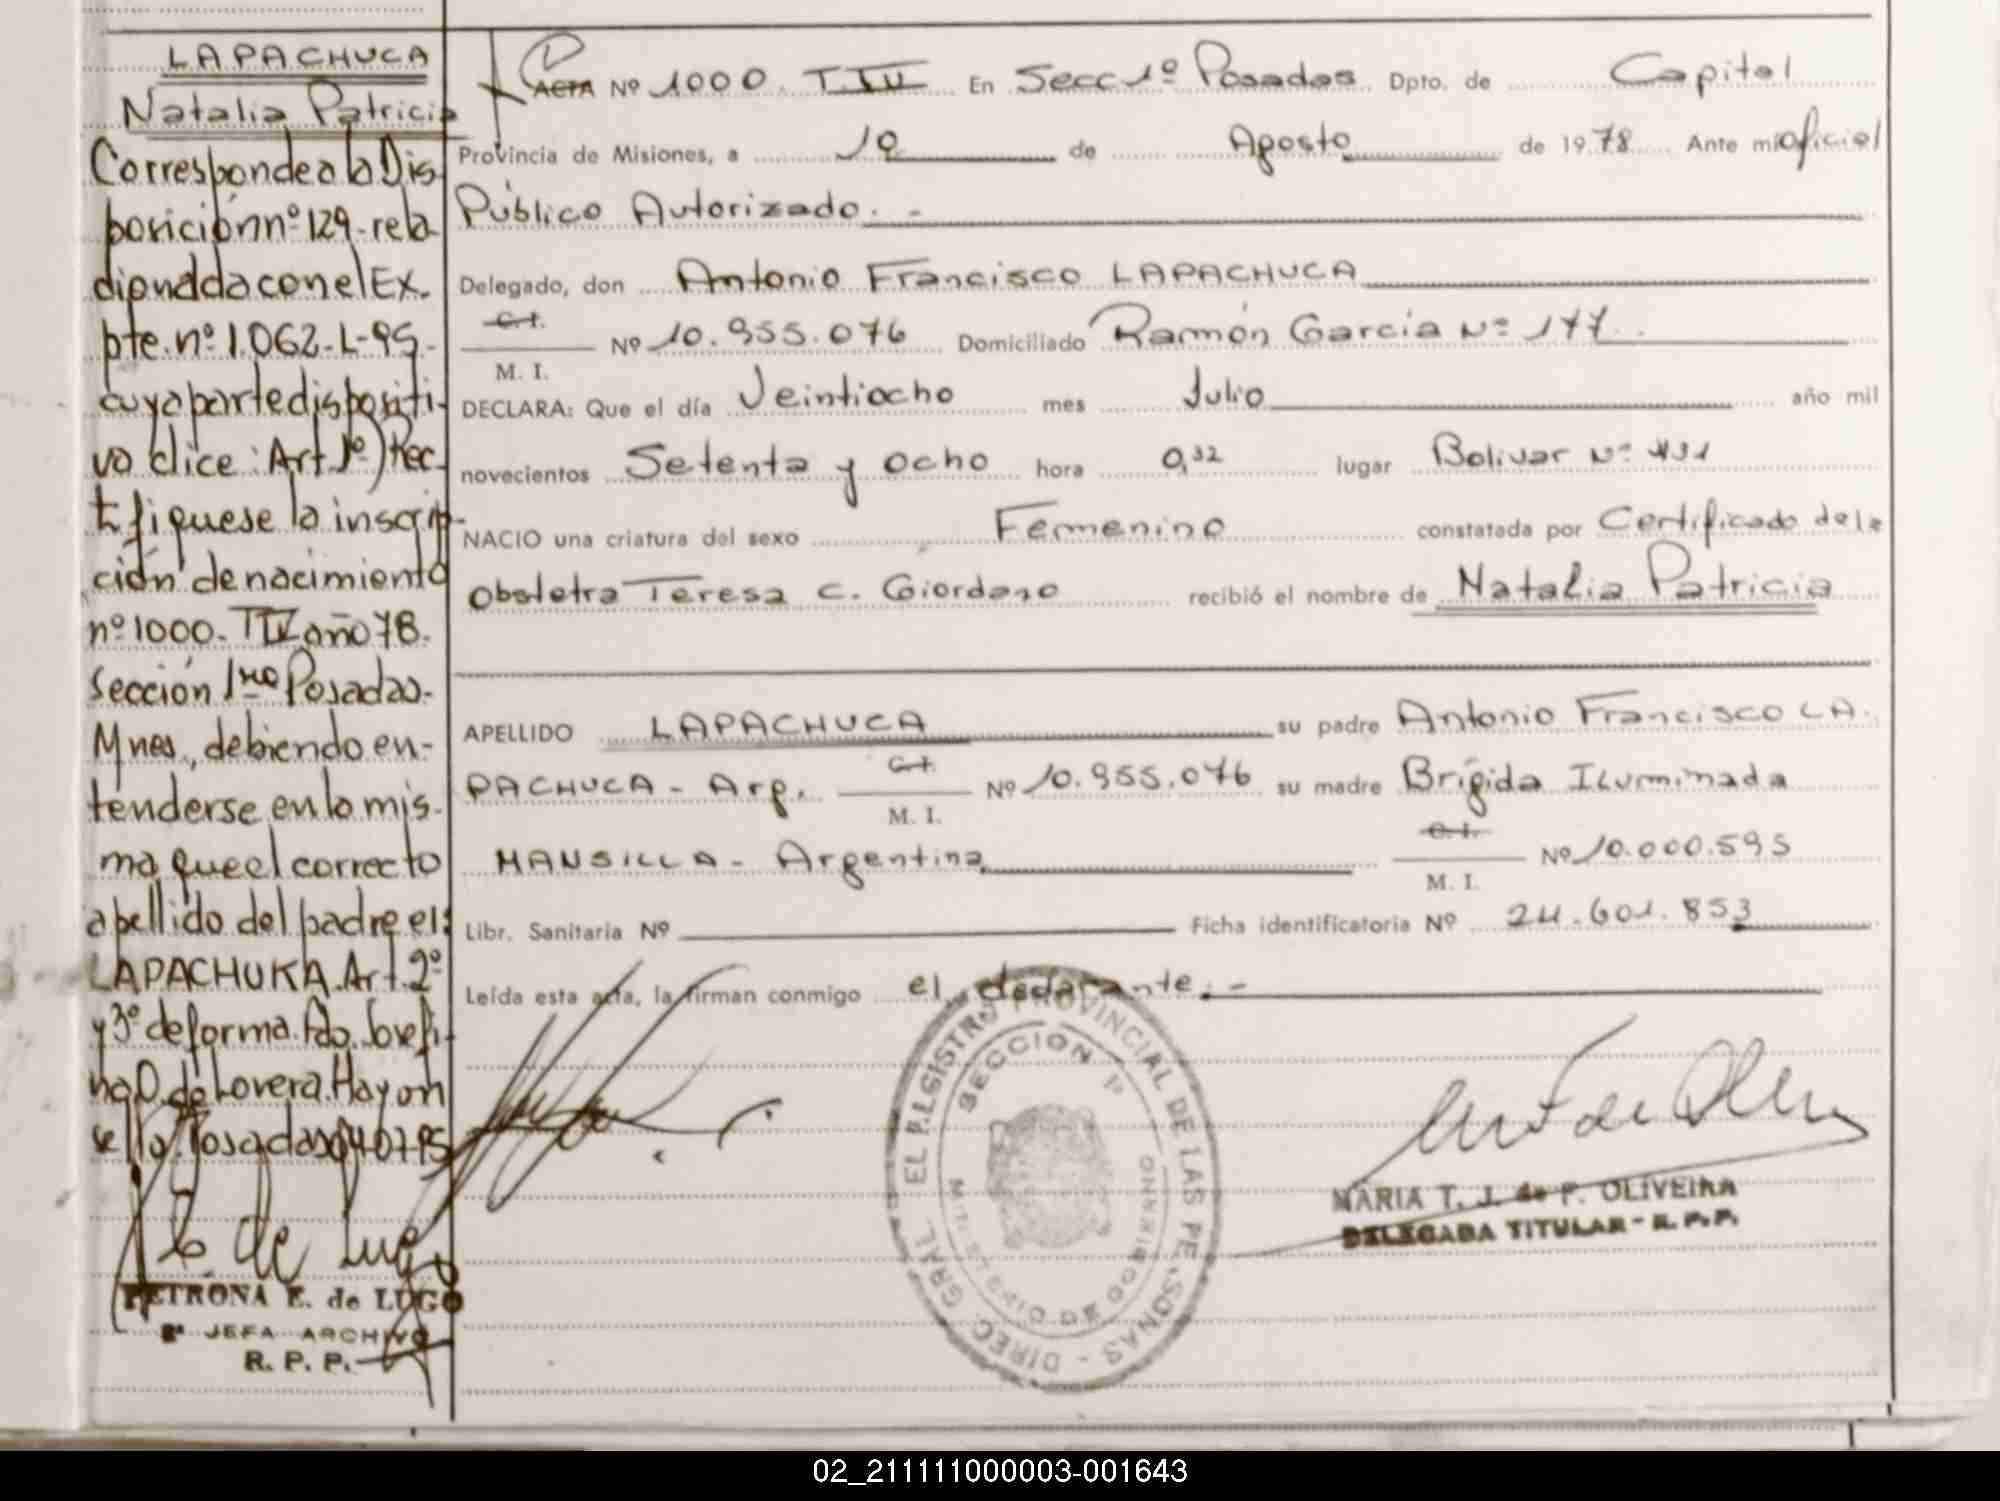 LAPACHUCA
Natalia Patricia
Corresponde a la Dis
posición nº 129- rela
cionada con el Ex.
pte. nº 1.062-L-95-
cuya parte dispositi-
va dice: Art. 1º) Rec-
tifiquese la inscrip-
ción de nacimiento
nº 1000- TIV año 78.
Sección 1ra Posadas-
Mnes., debiendo en-
tenderse en la mis-
ma que el correcto
apellido del padre es:
LAPACHUKA. Art. 2º
y 3º de forma. Fdo. Josefi-
na D. de Lovera. Hay un
sello. Posadas 04-07-95
PETRONA E. de LUGO
2ª JEFA ARCHIVO
R. P. P.
ACTA Nº 1000. TIV En Secc 1º Posadas Dpto. de Capital
Provincia de Misiones, a 10 de Agosto de 1978 Ante mi Oficial
Público Autorizado. -
Delegado, don Antonio Francisco LAPACHUCA
C. I.
M. I. Nº 10.955.076 Domiciliado Ramón García Nº 177.
DECLARA: Que el día Veintiocho mes Julio año mil
novecientos Setenta y ocho hora 0,32 lugar Bolivar Nº 431
NACIO una criatura del sexo Femenino constatada por Certificado de la
Obstetra Teresa C. Giordano recibió el nombre de Natalia Patricia
APELLIDO LAPACHUCA su padre Antonio Francisco LA-
PACHUCA - Arg. C. I. M. I. Nº 10.955.076 su madre Brígida Iluminada
MANSILLA - Argentina C. I. M. I. Nº 10.000.595
Libr. Sanitaria Nº Ficha identificatoria Nº 24.601.853
Leída esta acta, la firman conmigo el declarante. -
DIREC. GRAL. EL REGISTRO PROVINCIAL DE LAS PERSONAS -
SECCION 1º
MARIA T. J. de P. OLIVEIRA
DELEGADA TITULAR - R. P. P.
02_211111000003-001643